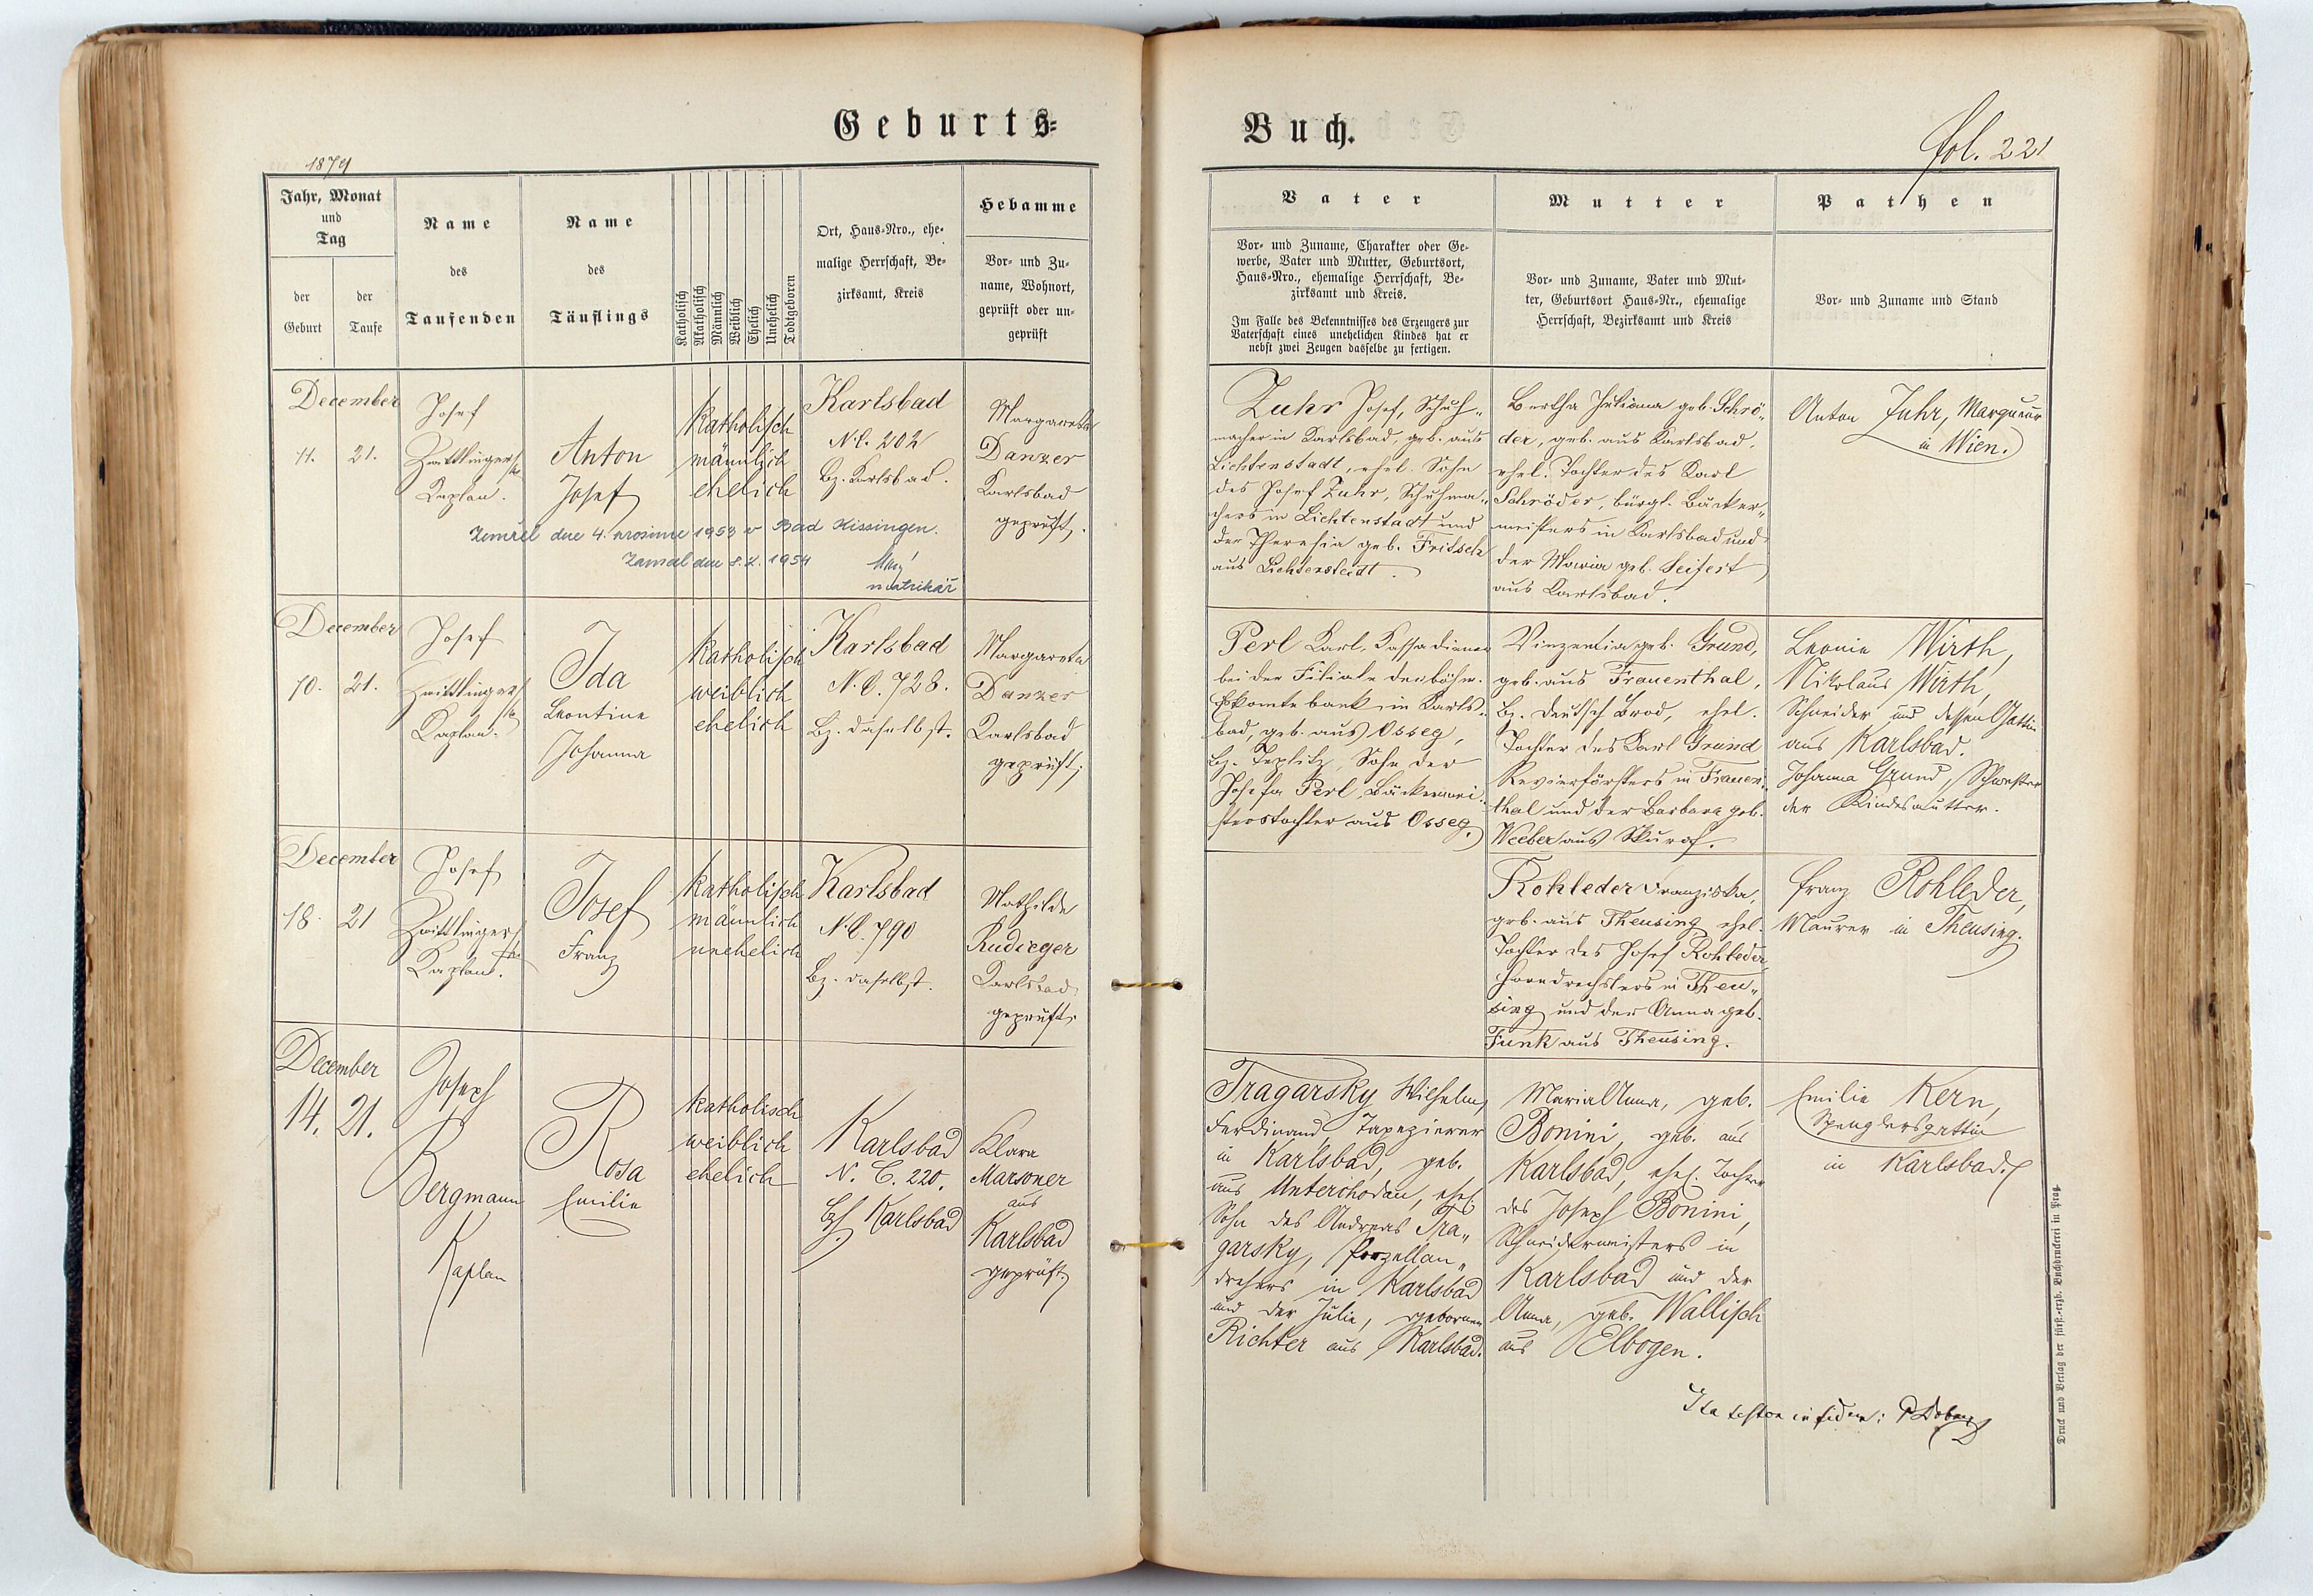 Geburts=
1879
Jahr, Monat
und
Tag
der
Geburt
der
Taufe
Name
des
Taufenden
Name
des
Täuflings
Katholisch
Akatholisch
Männlich
Weiblich
Ehelich
Unehelich
Todtgeboren
Ort, Haus=Nro., ehe=
malige Herrschaft, Be=
zirksamt, Kreis
Hebamme
Vor= und Zu=
name, Wohnort,
geprüft oder un=
geprüft
December
11. 21.
Josef
Zwittlinger
Kaplan.
Anton
Josef
katholisch
männlich
ehelich
Karlsbad
N.C. 202
Bz. Karlsbad.
Margareta
Danzer
Karlsbad
geprüft.
Zemřel dne 4. prosince 1953 v Bad Kissingen.
Zapsal dne 8.X. 1954
matrikář
December
10. 21.
Josef
Zwittlinger
Kaplan.
Ida
Leontine
Johanna
katholisch
weiblich
ehelich
Karlsbad
N.C. 728.
Bz. daselbst.
Margareta
Danzer
Karlsbad
geprüft.
December
18. 21
Josef
Zwittlinger
Kaplan.
Josef
Franz
katholisch
männlich
unehelich
Karlsbad
N.C. 790
Bz. daselbst.
Mathilde
Rudieger
Karlsbad
geprüft.
December
14. 21.
Joseph
Bergmann
Kaplan
Rosa
Emilie
katholisch
weiblich
ehelich
Karlsbad
N. C. 220.
Bz. Karlsbad
Klara
Marsoner
aus
Karlsbad
geprüft.
Buch.
fol. 221
Vater
Vor= und Zuname, Charakter oder Ge=
werbe, Vater und Mutter, Geburtsort,
Haus=Nro., ehemalige Herrschaft, Be=
zirksamt und Kreis.
Im Falle des Bekenntnisses des Erzeugers zur
Vaterschaft eines unehelichen Kindes hat er
nebst zwei Zeugen dasselbe zu fertigen.
Mutter
Vor= und Zuname, Vater und Mut=
ter, Geburtsort Haus=Nr., ehemalige
Herrschaft, Bezirksamt und Kreis
Pathen
Vor= und Zuname und Stand
Zuhr Josef, Schuh„
macher in Karlsbad, geb. aus
Lichtenstadt, ehel. Sohn
des Josef Zuhr, Schuhma„
chers in Lichtenstadt und
der Theresia geb. Fritsch
aus Lichtenstadt.
Bertha Juliana geb. Schrö„
der, geb. aus Karlsbad,
ehel. Tochter des Karl
Schröder, bürgl. Bäcker„
meisters in Karlsbad und
der Maria geb. Seifert
aus Karlsbad.
Anton Zuhr, Marqueur
in Wien.
Perl Karl, Kassadiener
bei der Filiale der böhm.
Eskomtebank in Karls„
bad, geb. aus Osseg,
Bz. Teplitz, Sohn der
Josefa Perl, Bäckermei„
sterstochter aus Osseg.
Vinzentia geb. Grund,
geb. aus Frauenthal,
Bz. Deutsch Brod, ehel.
Tochter des Karl Grund
Revierförsters in Frauen„
thal und der Barbara geb.
Weeber aus Skurof.
Leonie Wirth,
Nikolaus Wirth,
Schneider und dessen Gattin
aus Karlsbad.
Johanna Grund, Schwester
der Kindesmutter.
Rohleder Franziska,
geb. aus Theusing, ehel.
Tochter des Josef Rohleder,
Horndrechslers in Theu„
sing und der Anna geb.
Funk aus Theusing.
Franz Rohleder,
Maurer in Theusing.
Tragarsky Wilhelm,
Ferdinand, Tapezierer
in Karlsbad, geb.
aus Unterchodau, ehel.
Sohn des Andreas Tra„
garsky, Porzellan„
drehers in Karlsbad
und der Julie, gebornen
Richter aus Karlsbad.
Maria Anna, geb.
Bonini, geb. aus
Karlsbad, ehel. Tochter
des Joseph Bonini,
Schneidermeisters in
Karlsbad und der
Anna, geb. Wallisch
aus Elbogen.
Emilie Kern,
Spenglersgattin
in Karlsbad.
Ita testor in fidem:
Druck und Verlag der fürst.=erzb. Buchdruckerei in Prag.